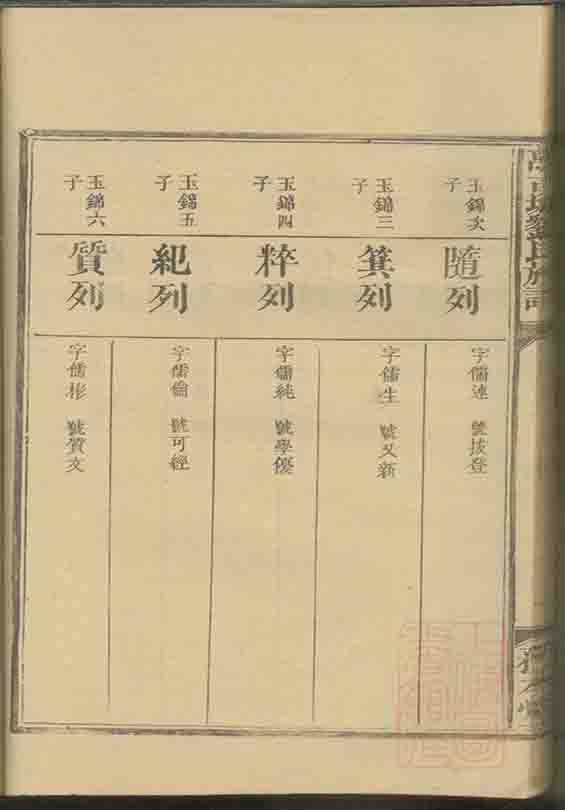 玉錦次子
隨列
字儒連 號拔登
玉錦三子
箕列
字儒生 號又新
玉錦四子
粹列
字儒純 號學優
玉錦五子
紀列
字儒倫 號可經
玉錦六子
質列
字儒彬 號質文